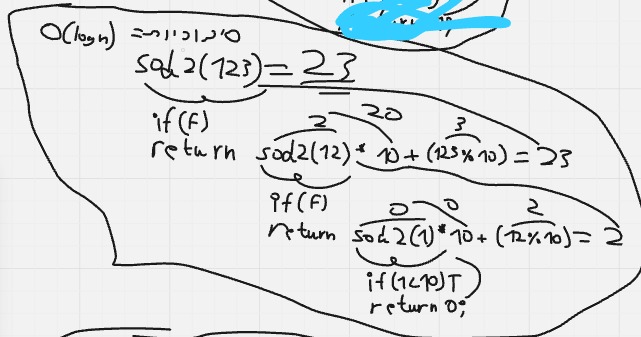 O(logn) = סיבוכיות
sod2(123) = 23
if(F)
2 20 3
return sod2(12) * 10 + (123%10) = 23
if(F)
0 0 2
return sod2(1) * 10 + (12%10) = 2
if(1<10)T
return 0;